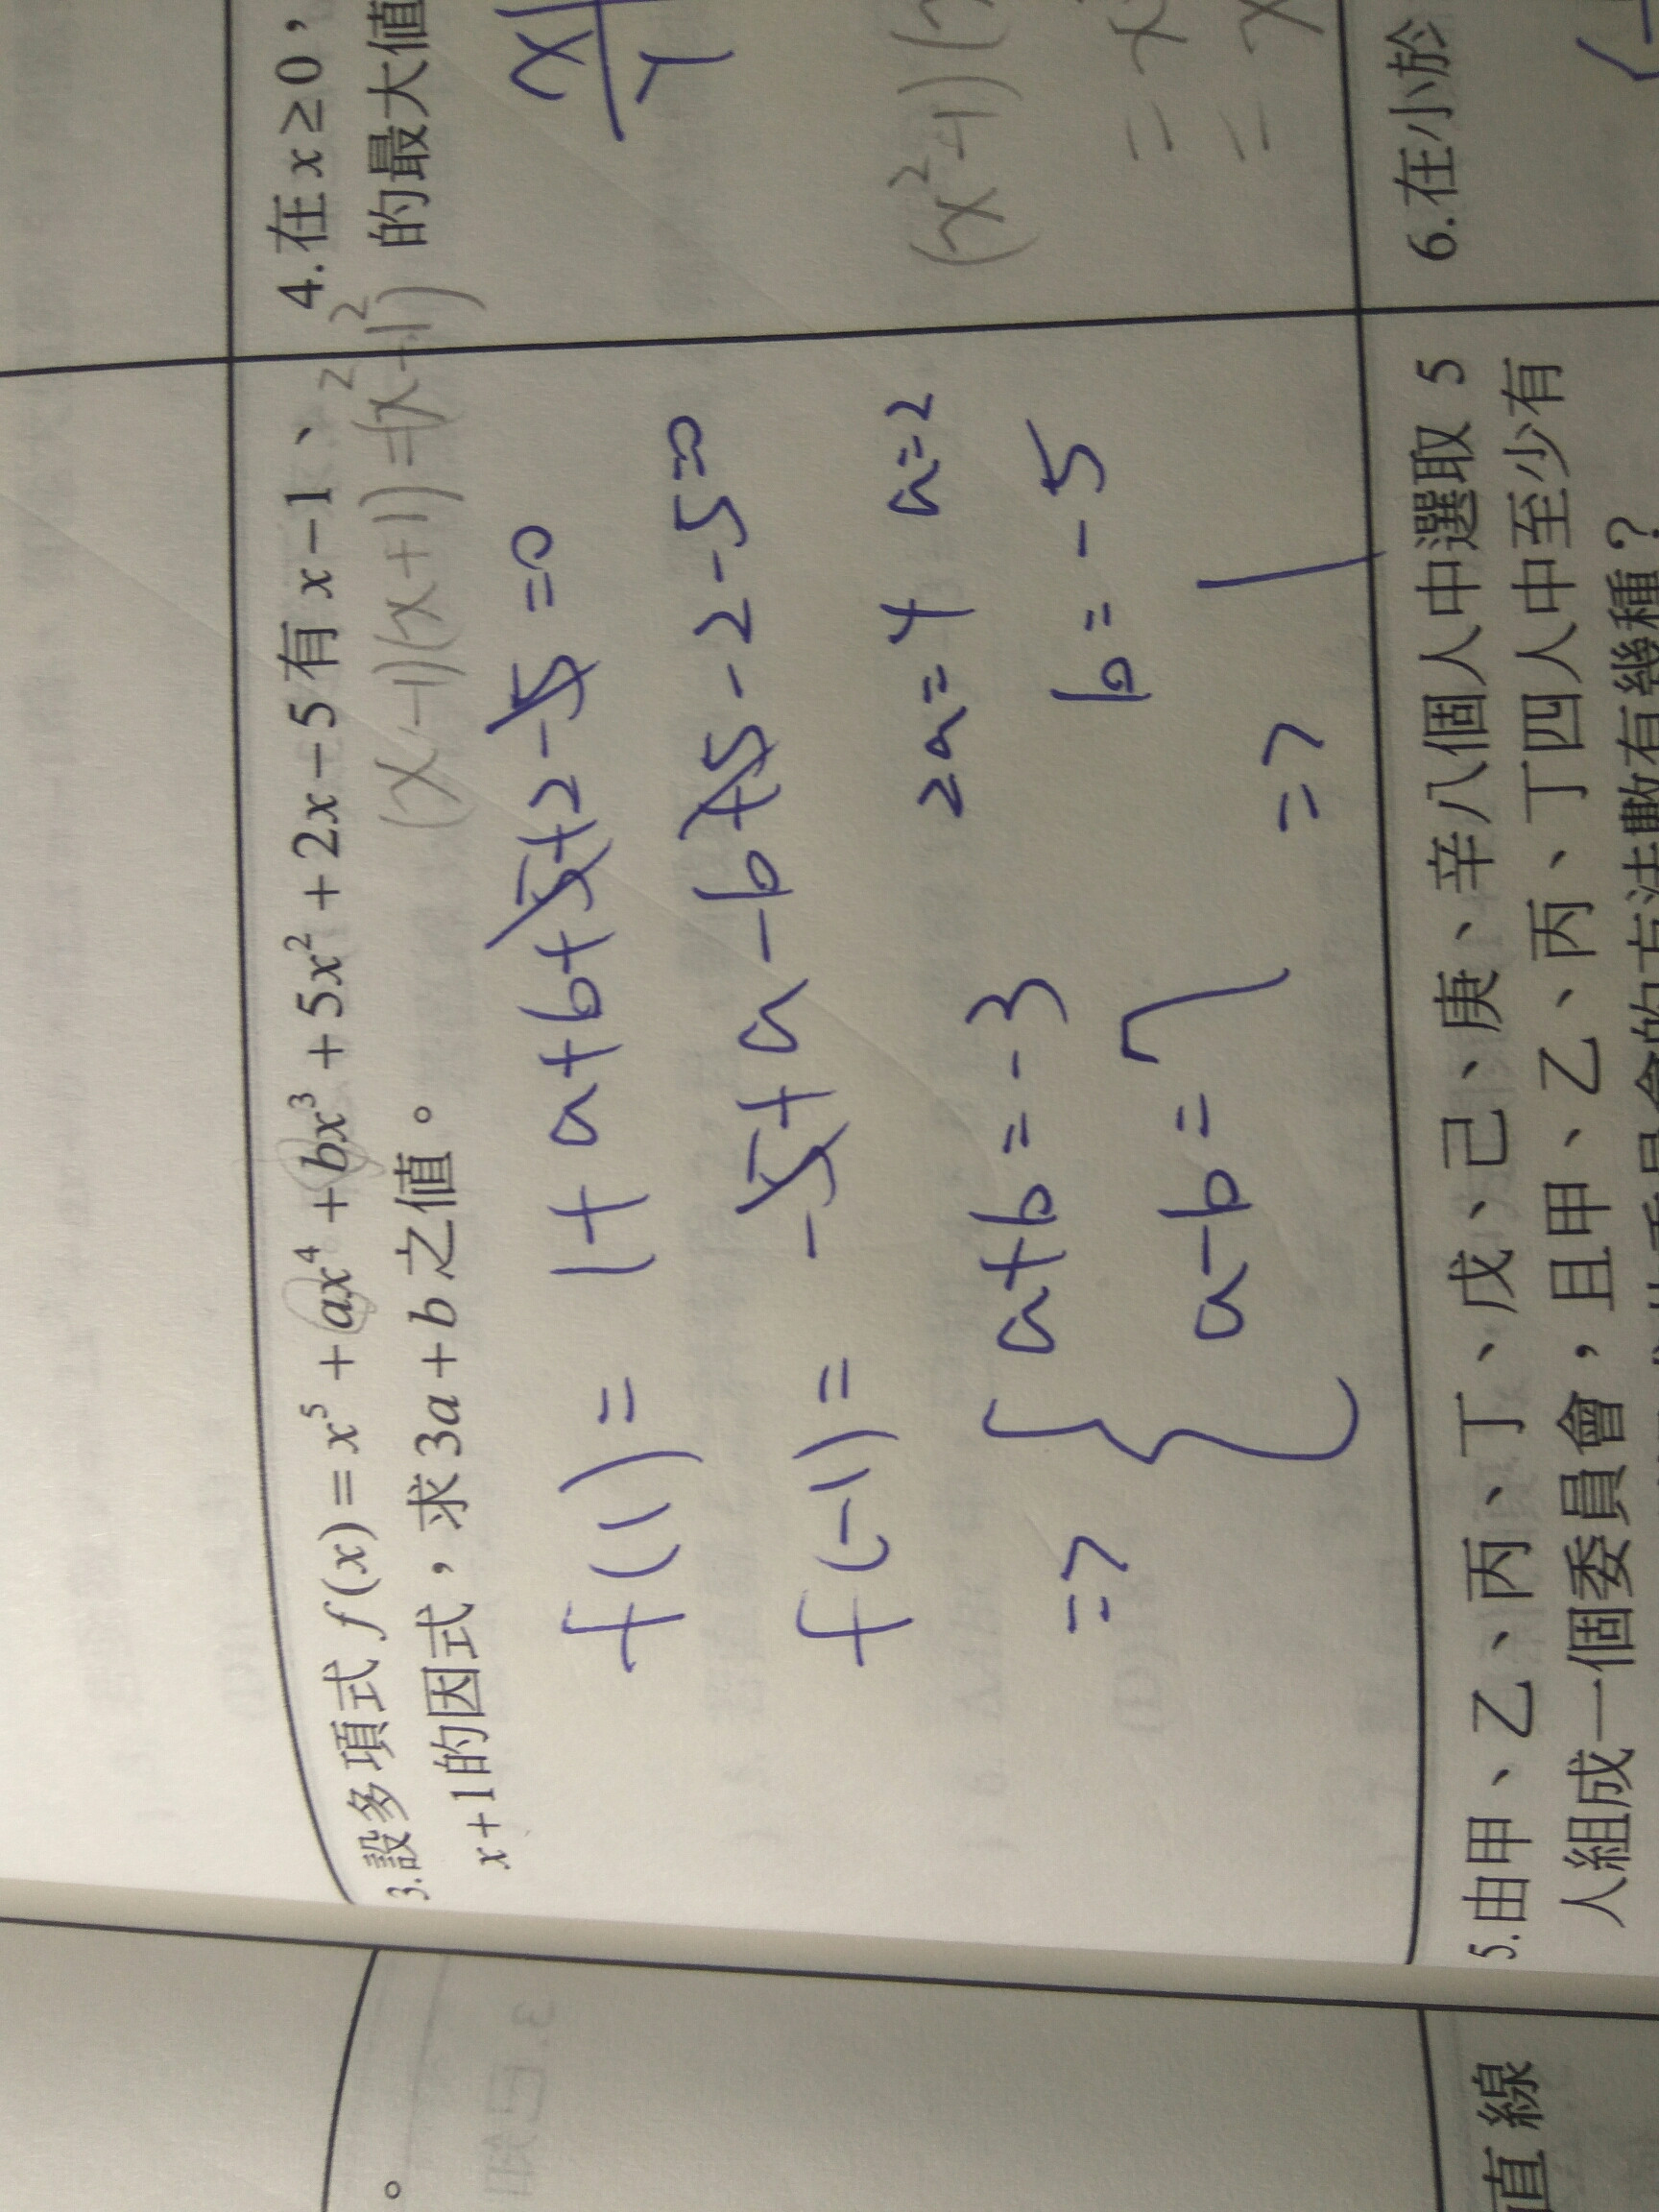 3.設多項式 f(x)=x⁵+ax⁴+bx³+5x²+2x−5有 x−1、
x+1的因式，求3a+b之值。
(x-1)(x+1)=(x²-1²)
f(1)= 1+a+b+5+2-5=0
f(-1)= a-b+5-2-5=0
=> { a+b=-3 2a=4 a=2
a-b= b=-5
=> 1
4.在x≥0，
的最大值
(x²-1)(
= x
= x
5.由甲、乙、丙、丁、戊、己、庚、辛八個人中選取 5
人組成一個委員會，且甲、乙、丙、丁四人中至少有
方法數有幾種？
6.在小於
。
直線